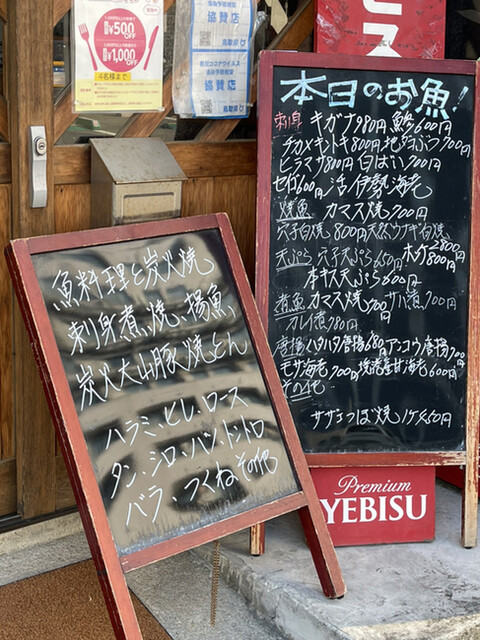 ¥500
OFF
¥1,000
OFF
4名様まで
協賛店
鳥取県
新型コロナウイルス
感染予防対策
協賛店
鳥取県
ビス
本日のお魚!
刺身 キガナ980円 鯵600円
チカメキントキ800円 地 700円
ヒラマサ800円 白ばい700円
600円 活伊勢海老
焼魚 カマス焼700円
穴子白焼800円 天然ウナギ白焼 2800円
天ぷら 穴子天ぷら650円 ホッケ800円
本キス天ぷら600円
煮魚 カマス煮700円 サバ煮700円
カレイ煮780円
唐揚 ハタハタ唐揚680円 アンコウ唐揚700
モサ海老700円 塩焼甘海老600円
その他
サザエつぼ焼1ケ450円
魚料理と炭火焼
刺身、煮、焼、揚魚、
炭火大山豚焼とん
ハラミ、ヒレ、ロース
タン、シロ、ハツ、トントロ
バラ、つくね その他
Premium
YEBISU